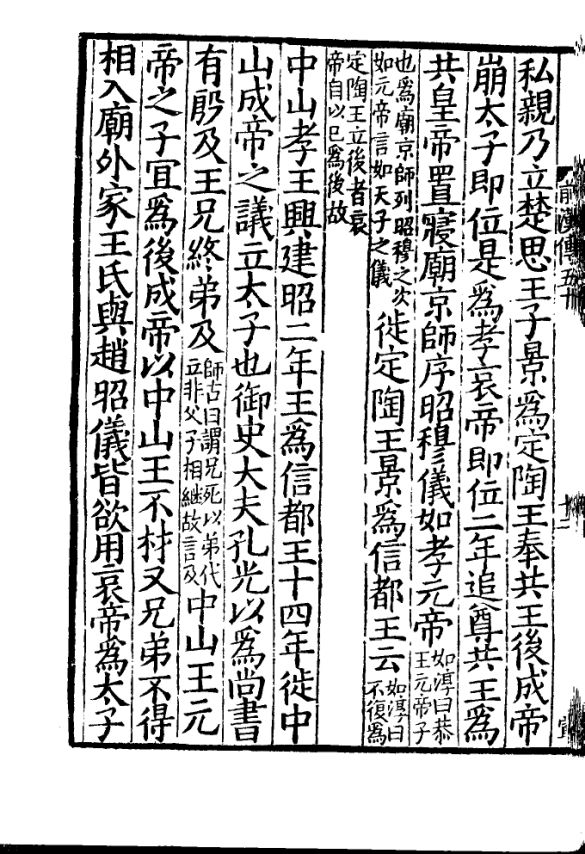 前漢傳五十
十二
私親乃立楚思王子景爲定陶王奉共王後成帝
崩太子即位是爲孝哀帝即位二年追尊共王爲
共皇帝置寢廟京師序昭穆儀如孝元帝如淳曰恭王元帝子
也爲廟京師列昭穆之次如元帝言如天子之儀徙定陶王景爲信都王云如淳曰不復爲
定陶王立後者哀帝自以已爲後故
中山孝王興建昭二年王爲信都王十四年徙中
山成帝之議立太子也御史大夫孔光以爲尚書
有殷及王兄終弟及師古曰謂兄死以弟代立非父子相繼故言及中山王元
帝之子宜爲後成帝以中山王不材又兄弟不得
相入廟外家王氏與趙昭儀皆欲用哀帝爲太子